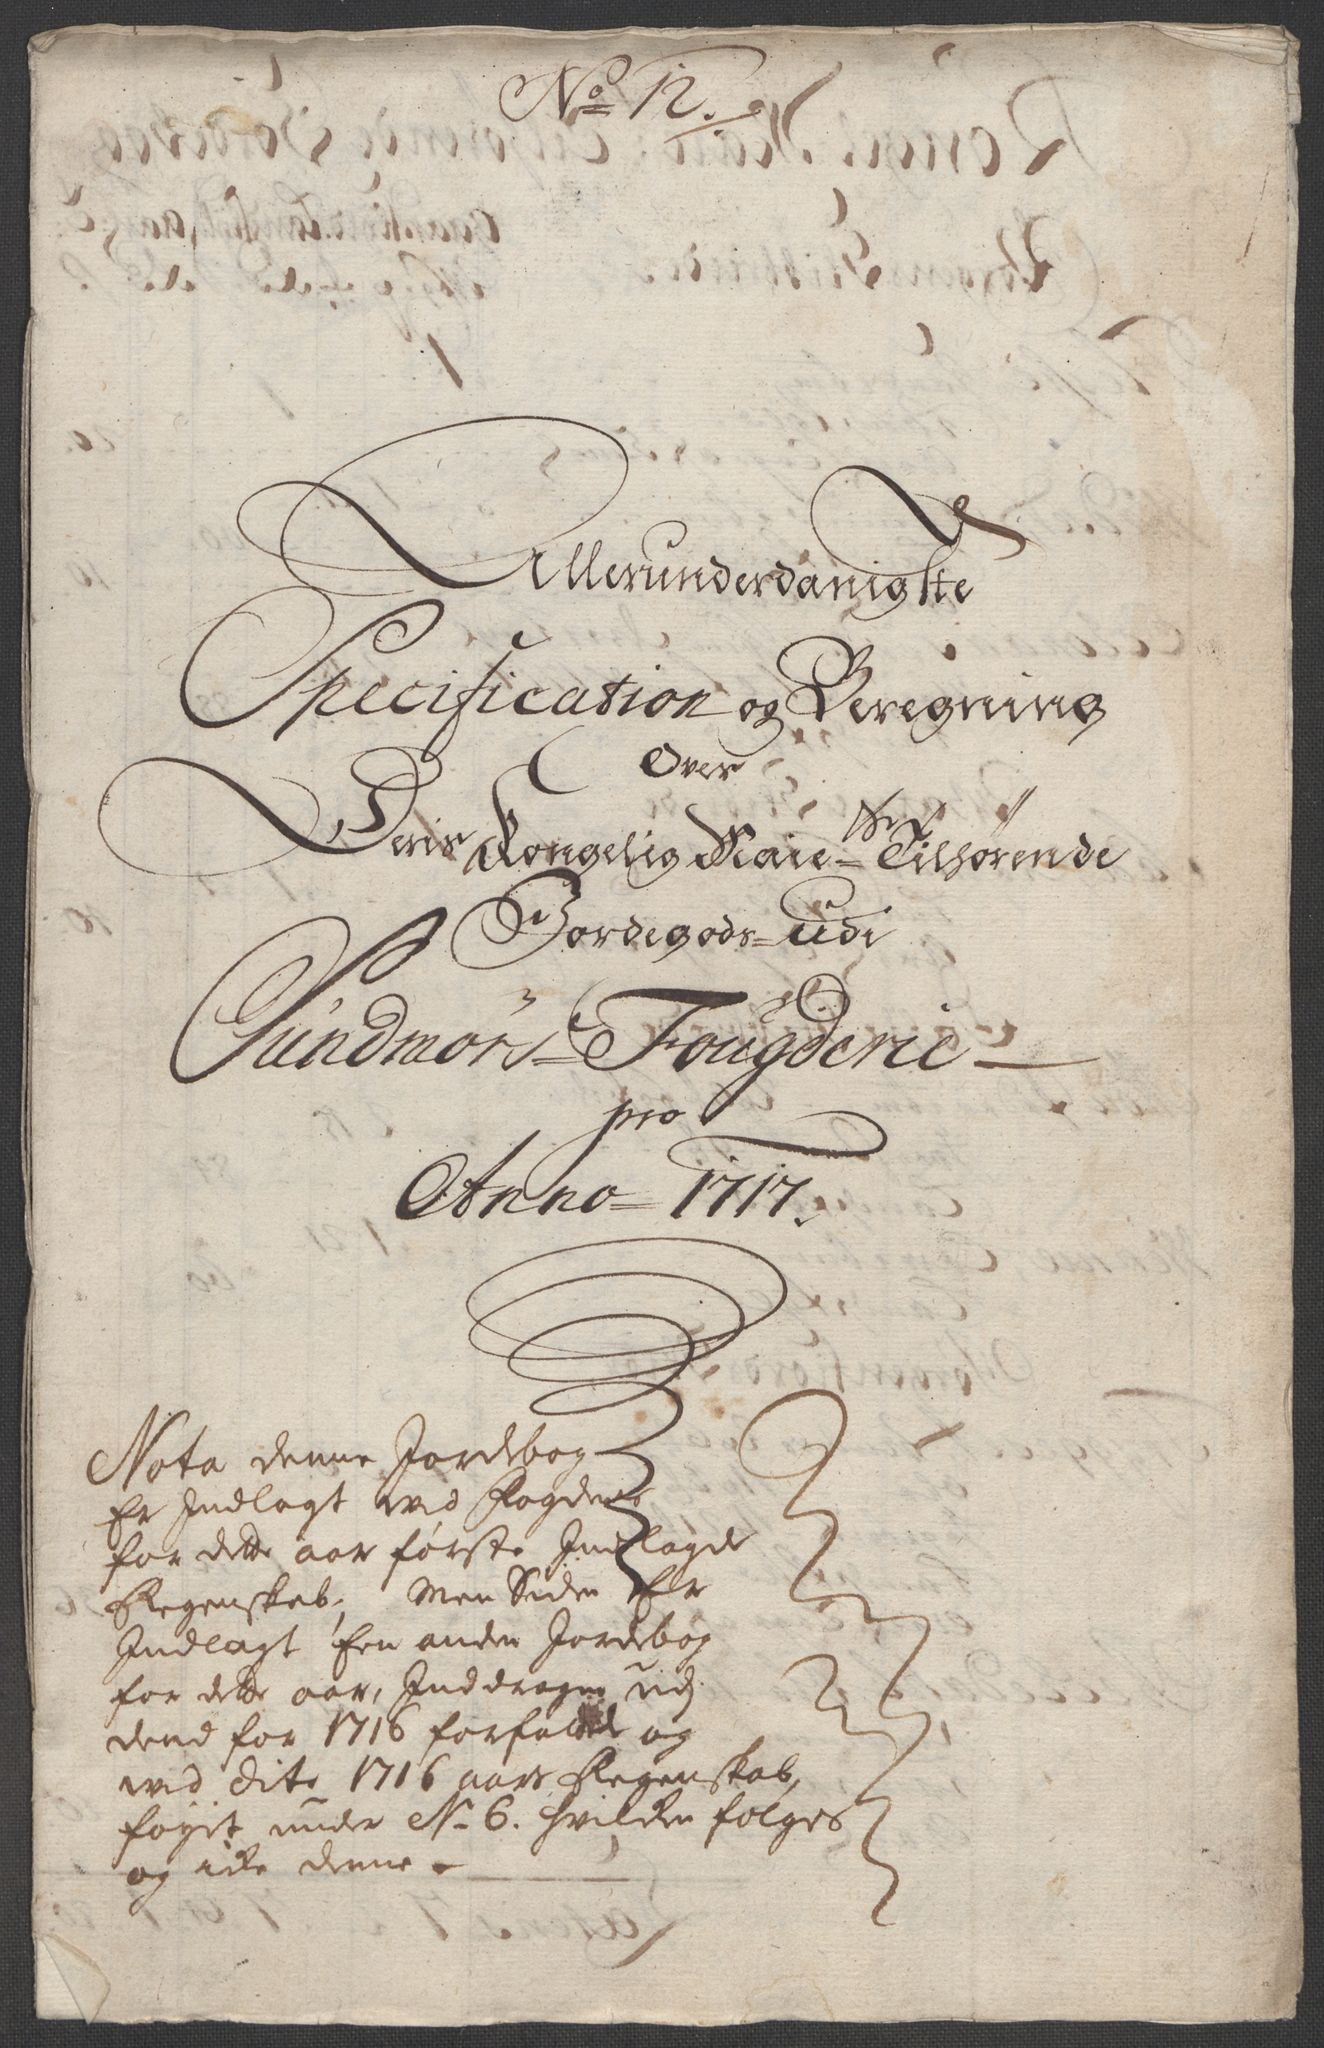 No 12.
Allerunderdanigste
Specification og Beregning
Over
Deris Kongelig Maie-ts Tilhørende
Jordegods udi
Sundmørs Fougderie
pro
Anno 1717.
Nota denne Jordebog
Er Indlagt wed Fogdens
for dette aar første Indlagde
Regenskab, Men Siden Er
Indlagt Een anden Jordebog
for dette aar, Inddragen udj
dend for 1716 forfatted og
wed dito 1716 aars Regenskab,
føyet under No 6. hvilken følges
og icke denne